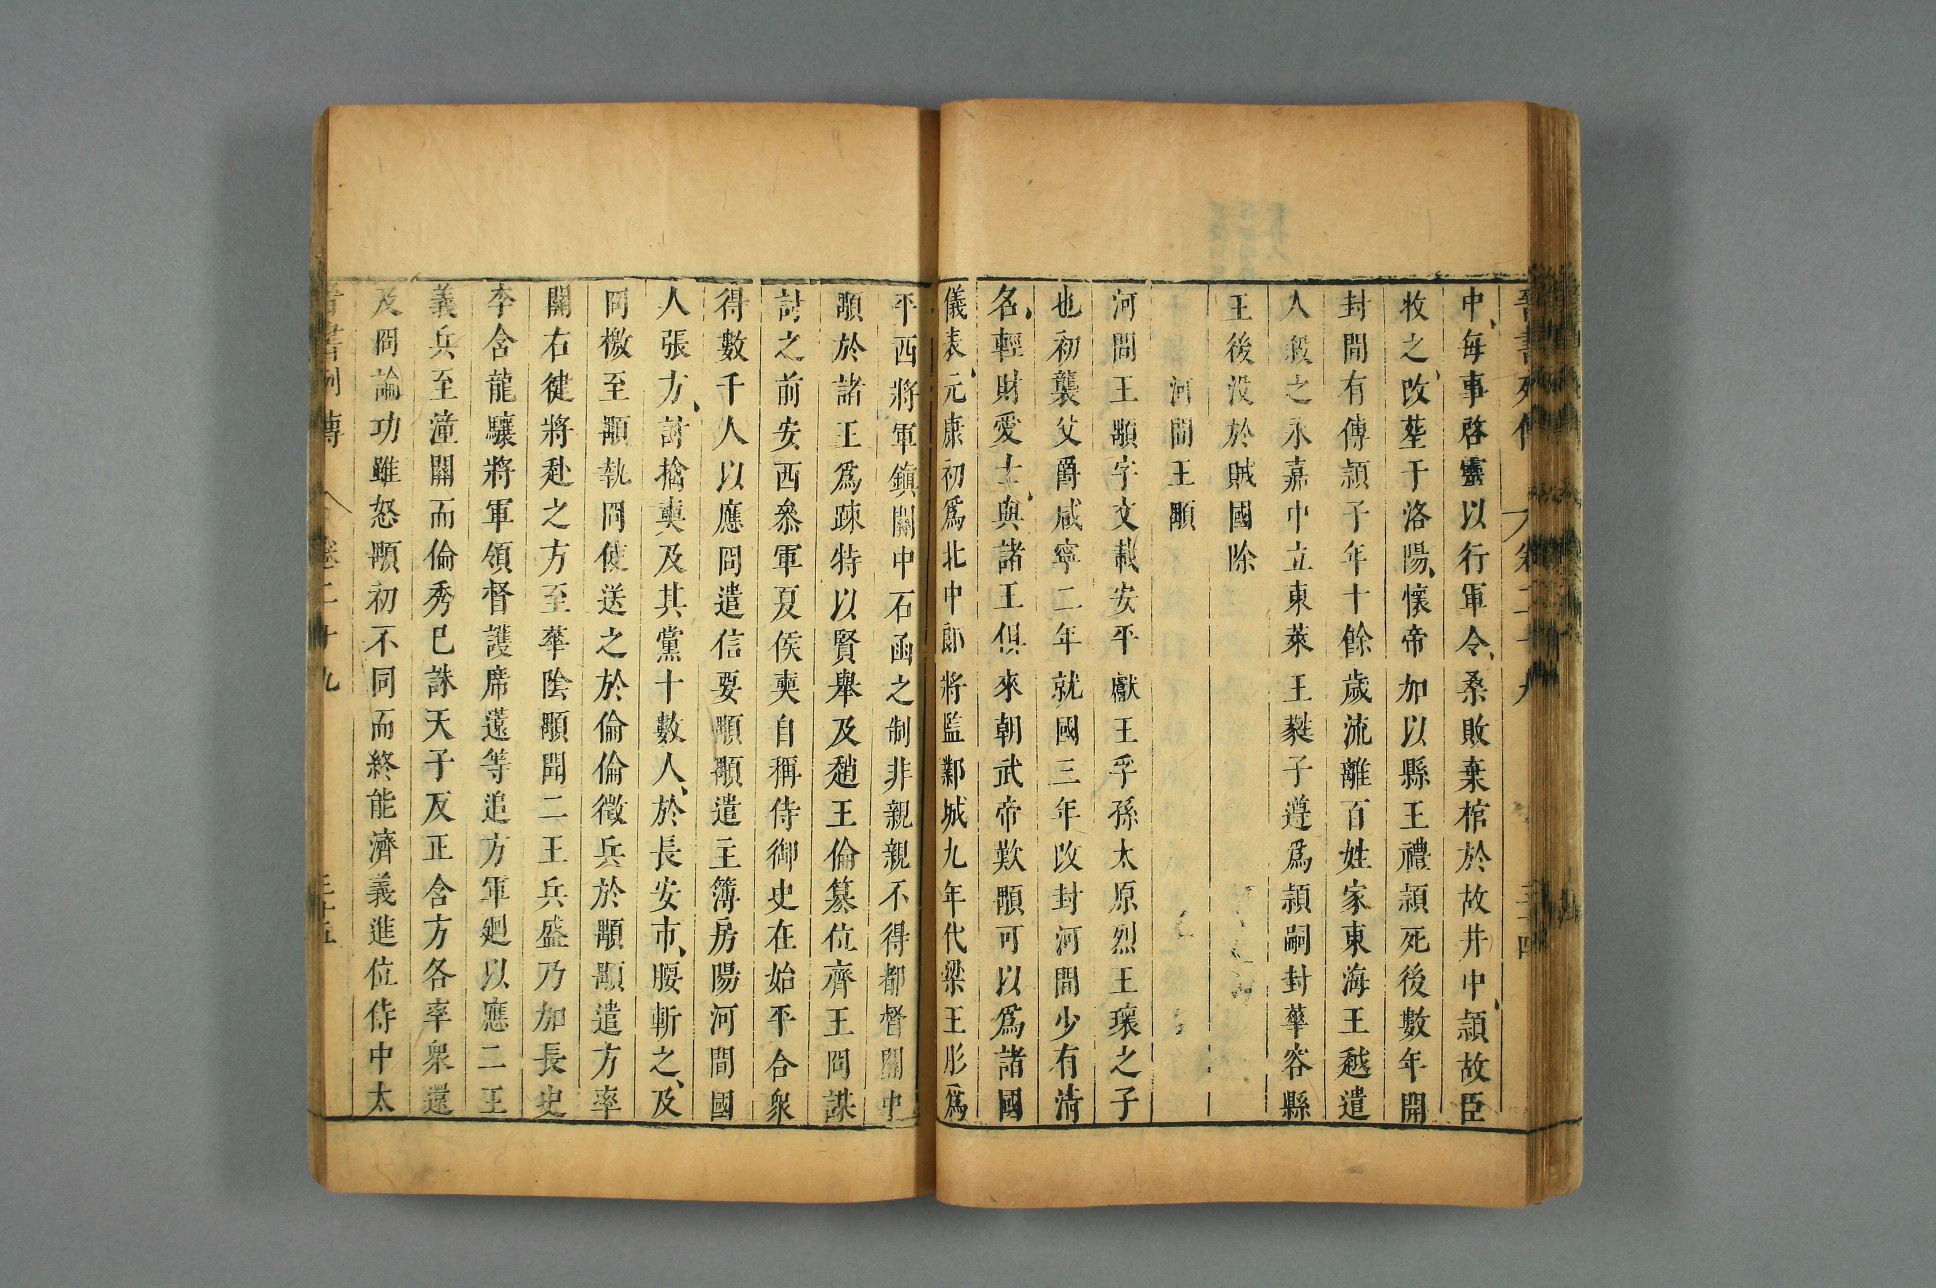 晉書列傳 卷二十九 三十四
中每事啓靈以行軍令桑敗棄棺於故井中頴故臣
收之改塟于洛陽懷帝加以縣王禮頴死後數年開
封間有傳頴子年十餘歲流離百姓家東海王越遣
人殺之永嘉中立東萊王蕤子遵爲頴嗣封華容縣
王後没於賊國除
河間王顒
河間王顒字文載安平獻王孚孫太原烈王瓌之子
也初襲父爵咸寧二年就國三年改封河間少有清
名輕財愛士與諸王俱來朝武帝歎顒可以爲諸國
儀表元康初爲北中郎將監鄴城九年代梁王肜爲
平西將軍鎮關中石函之制非親親不得都督關中
顒於諸王爲踈特以賢舉及趙王倫簒位齊王冏謀
討之前安西叅軍夏侯奭自稱侍御史在始平合衆
得數千人以應冏遣信要顒顒遣主簿房陽河間國
人張方討擒奭及其黨十數人於長安市腰斬之及
冏檄至顒執冏使送之於倫倫徵兵於顒顒遣方率
關右徤將赴之方至華陰顒聞二王兵盛乃加長史
李含龍驤將軍領督護席薳等追方軍廻以應二王
義兵至潼關而倫秀已誅天子反正含方各率衆還
及冏論功雖怒顒初不同而終能濟義進位侍中太
晉書列傳 卷二十九 三十五